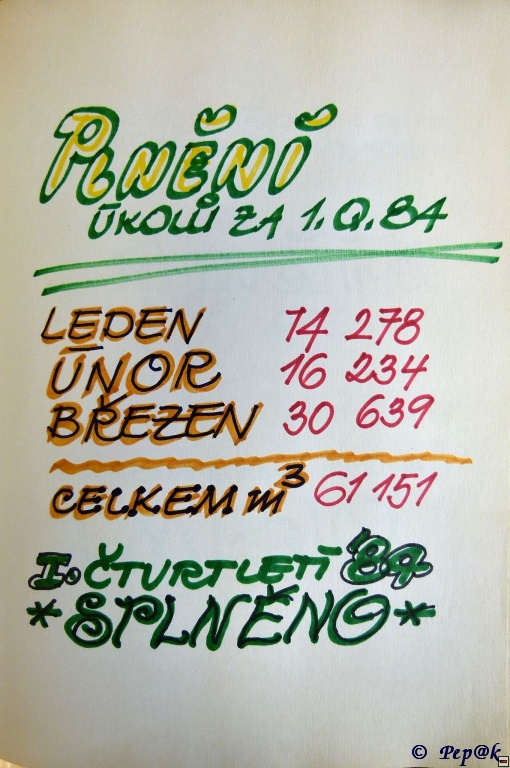 PLNĚNÍ
ÚKOLŮ ZA 1.Q.84
LEDEN 14 278
ÚNOR 16 234
BŘEZEN 30 639
CELKEM m³ 61 151
I. ČTVRTLETÍ '84
* SPLNĚNO *
© Pep@k